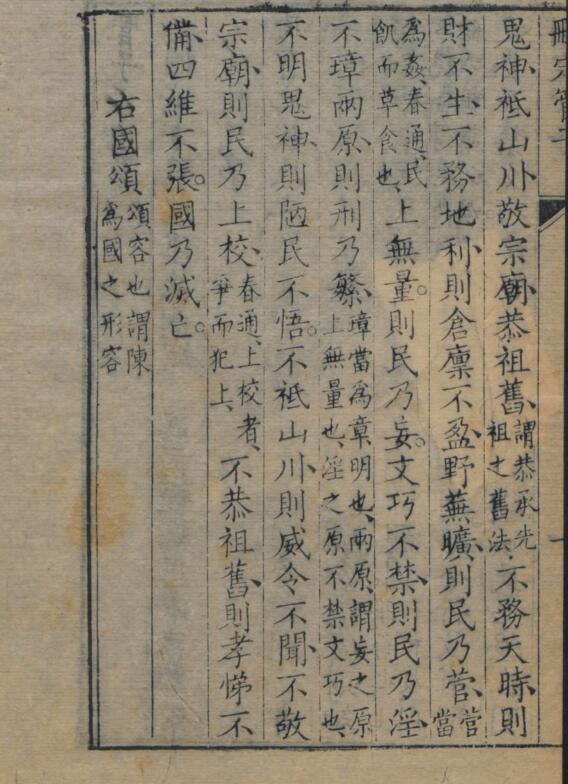 刪定管子
一
鬼神、祗山川、敬宗廟、恭祖舊、謂恭承先祖之舊法、不務天時則
財不生、不務地利、則倉廩不盈、野蕪曠、則民乃菅、菅當
為姦、春通、民飢而草食也、上無量。則民乃妄。文巧不禁則民乃淫、
不璋兩原、則刑乃繁、璋當為章、明也、兩原、謂妄之原上無量也、淫之原不禁文巧也、
不明鬼神、則陋民不悟。不祗山川、則威令不聞、不敬
宗廟、則民乃上校、春通、上校者、爭而犯上、不恭祖舊、則孝悌不
備、四維不張。國乃滅亡。
右國頌頌容也謂陳為國之形容